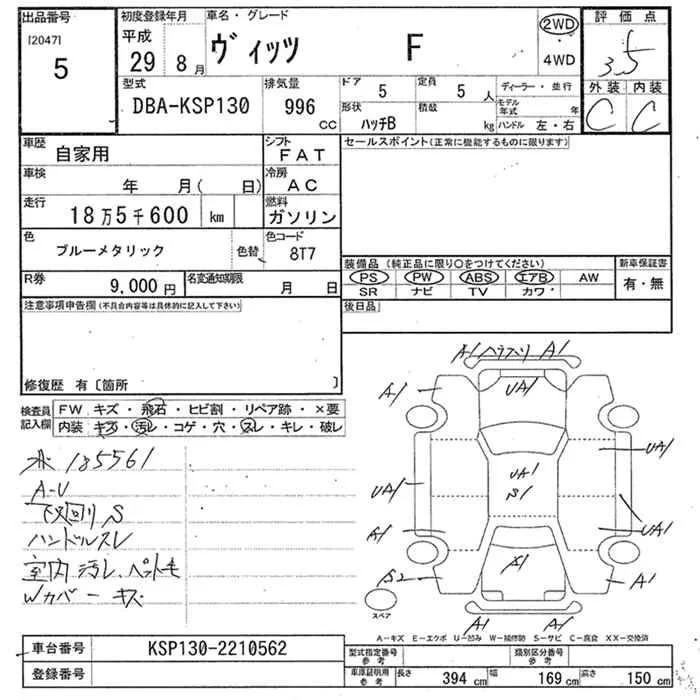 出品番号
[2047]
5
初度登録年月
平成
29 8月
車名・グレード
ヴィッツ F
2WD
・
4WD
評価点
3.5
外装 内装
C C
型式
DBA-KSP130
排気量
996 CC
ドア 5
定員 5 人
形状 ハッチB
積載 kg
ディーラー・並行
モデル年式 年
ハンドル 左・右
車歴
自家用
シフト
FAT
車検
年 月( 日)
冷房
AC
走行
18万5千600 km
燃料
ガソリン
色
ブルーメタリック
色替
色コード
8T7
R券
9,000円
名変通知期限
月 日
セールスポイント(正常に機能するものに限ります)
装備品(純正品に限り○をつけてください)
PS PW ABS エアB AW
SR ナビ TV カワ
新車保証書
有・無
後日品
注意事項申告欄(不具合内容等は具体的に記入して下さい)
修復歴 有〔箇所 〕
検査員記入欄
FW キズ・飛石・ヒビ割・リペア跡・×要
内装 キズ・汚レ・コゲ・穴・スレ・キレ・破レ
185561
A-U
下回り S
ハンドルスレ
室内汚レ、ペット毛
Wカバーキズ
A1 A1
A1 UA1 A1
UA1
UA1 UA1
S1
A1 UA1
S2 S1 A1
A1 A1
スペア
A-キズ E-エクボ U-凹み W-補修跡 S-サビ C-腐食 XX-交換済
車台番号
KSP130-2210562
登録番号
型式指定番号
参考
類別区分番号
参考
車庫証明用
参考
長さ 394 cm
幅 169 cm
高さ 150 cm